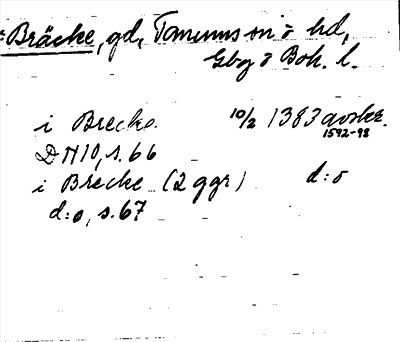 Bräcke, gd, Tanums sn o hd,
Gbg o Boh. l.
i Brecke 10/2 1383 avskr.
1592-93
DN 10, s. 66
i Brecke (2 ggr) d:o
d:o, s. 67